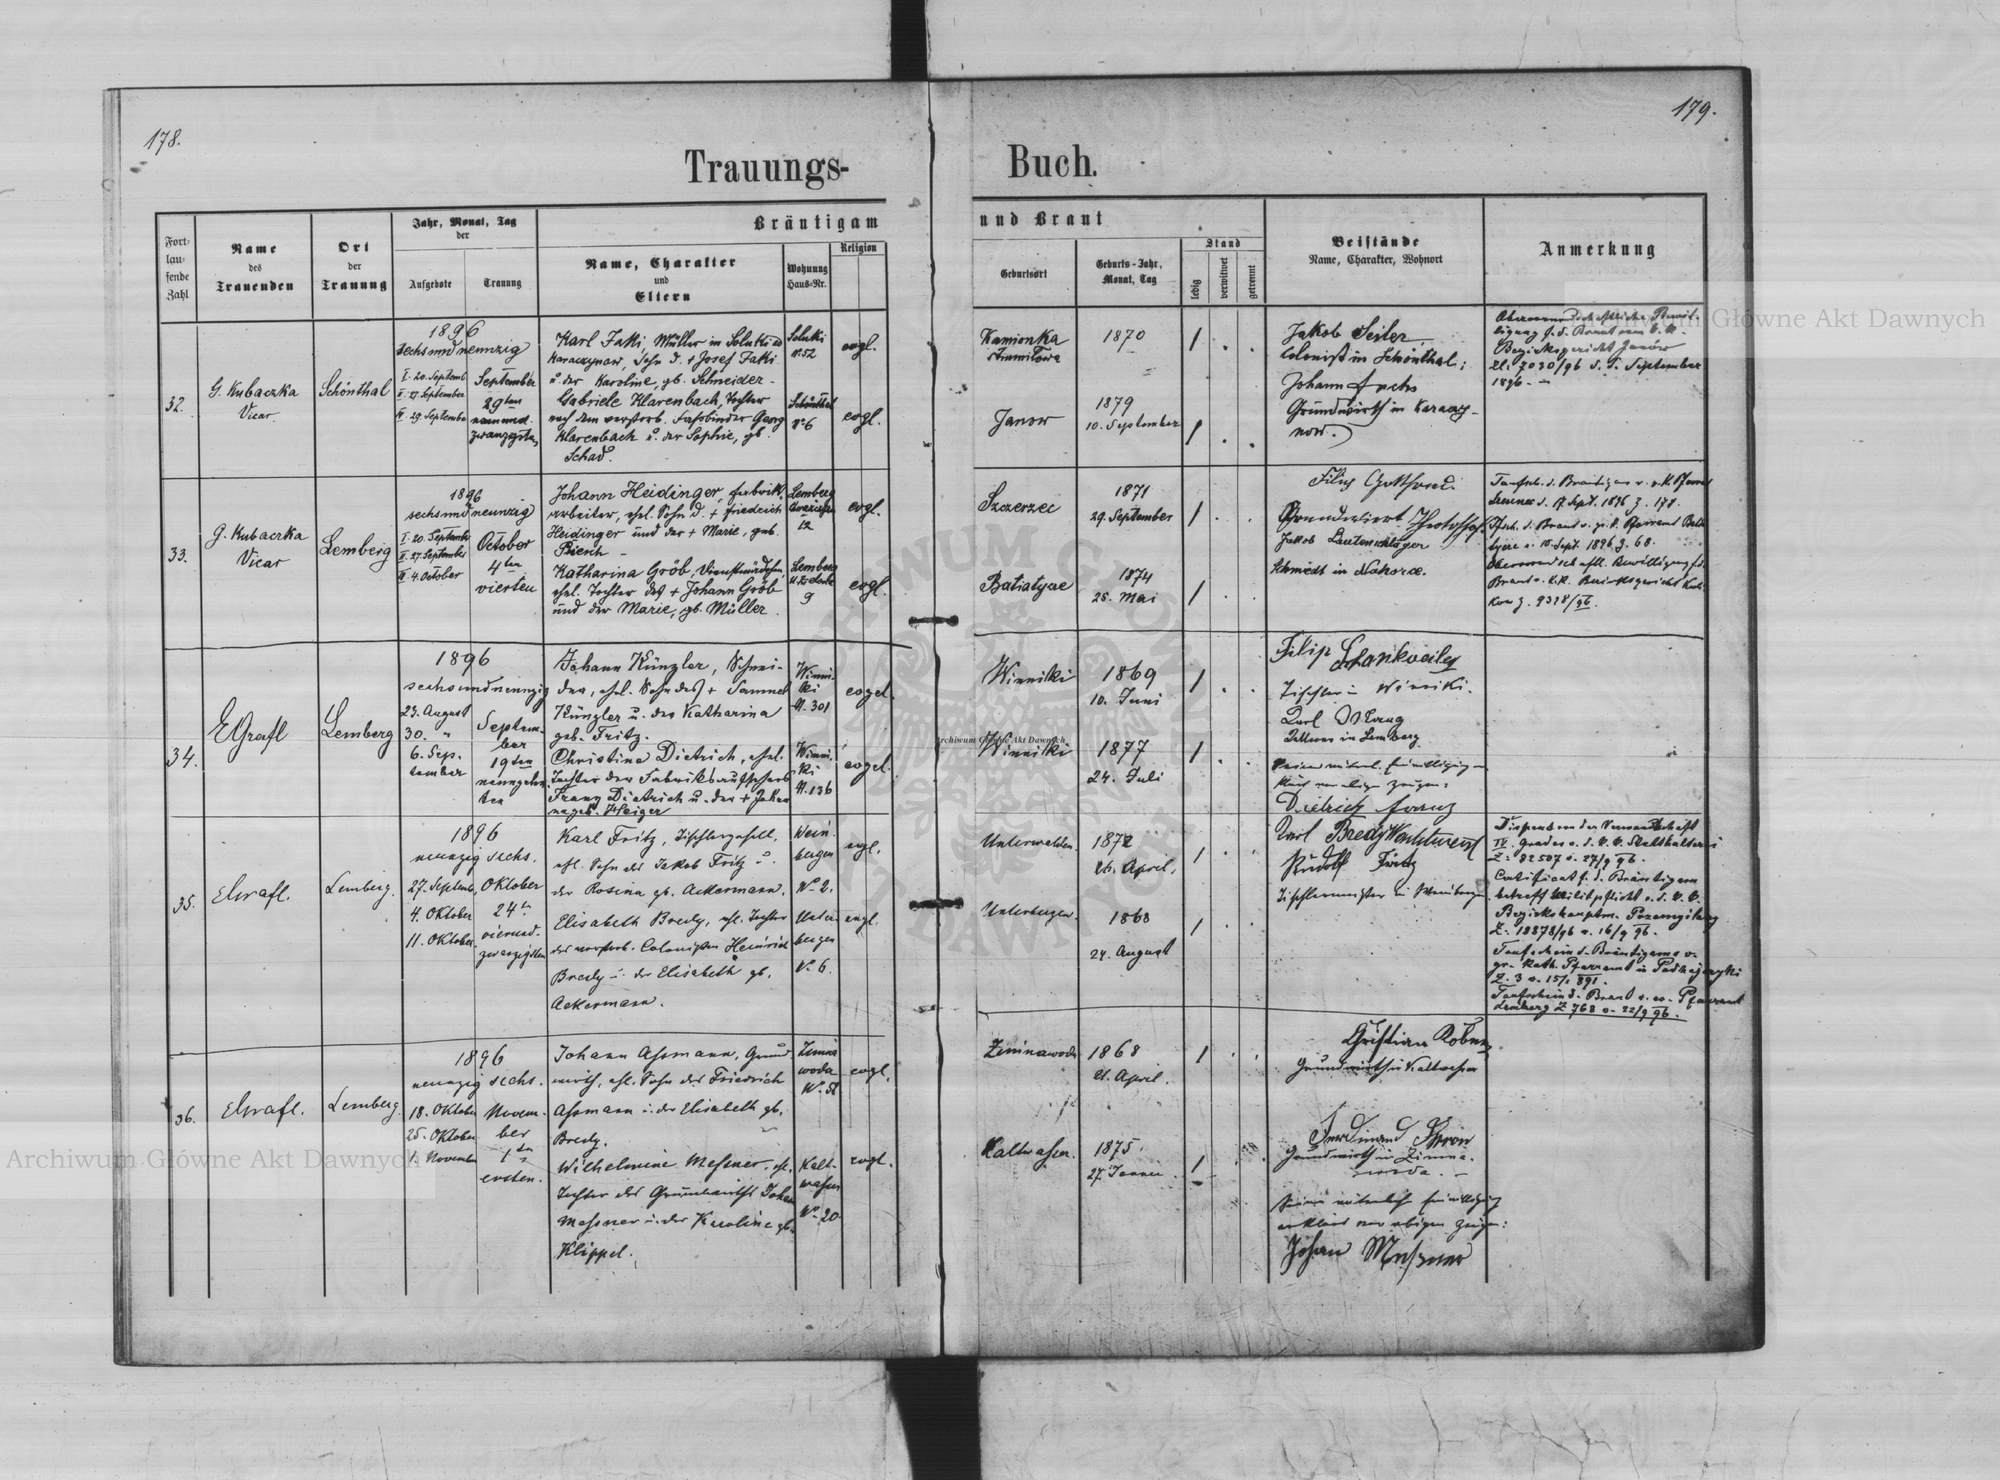 178.
179.
Trauungs-
Buch.
Fort-
lau-
fende
Zahl
Name
des
Trauenden
Ort
der
Trauung
Jahr, Monat, Tag
der
Aufgebote
Trauung
Bräutigam
Name, Charakter
und
Eltern
Wohnung
Haus-Nr.
Religion
und Braut
Geburtsort
Geburts-Jahr,
Monat, Tag
Stand
ledig
verwitwet
getrennt
Beistände
Name, Charakter, Wohnort
Anmerkung
32.
G. Kubaczka
Vicar.
Schönthal
1896
sechsundneunzig
I. 20. Septemb.
II. 27. September
III. 29. September
September
29ten
neunund-
zwanzigsten
Karl Jaki, Müller in Soluki
Karaczynow, Sohn d. + Josef Jaki
u. der Karoline, gb. Schneider.
Gabriele Klarenbach, Tochter
nach dem verstorb. Fassbinder Georg
Klarenbach u. der Sophie, gb.
Schad.
Soluki
No. 52
Schönthal
No 6
evgl.
evgl.
Kamionka
Janow
1870
1879
10. September
Jakob Seiler
Colonist in Schönthal;
Johann Fuchs
Grundwirth in Karaczy-
now.
Obervormundschaftliche Bewil-
ligung f. d. Braut vom k. k.
Bezirksgericht Janów
Zl: 7030/96 d. d. September
1896.
33.
G. Kubaczka
Vicar
Lemberg
1896
sechsundneunzig
I. 20. September
II. 27. September
III. 4. October
October
4ten
vierten
Johann Heidinger, Fabrik.
arbeiter, ehel. Sohn d. + Friedrich
Heidinger und der + Marie, geb.
Katharina Gröb, Dienstmädchen
ehel. Tochter des + Johann Gröb
und der Marie, gb. Müller.
Lemberg
12
Lemberg
9
evgl.
evgl.
Szczerzec
Batiatycze
1871
29. September
1874
25. Mai
Filip Gotthard.
Jakob Lautenschläger
Schmiedt in Nahorce.
Taufsch. d. Bräutigam v. r. k. Pfarre
d. 17. Sept. 1896 Z. 178.
v. 15. Sept. 1896 Z. 68.
obervormundschaftl. Bewilligung f. d.
Braut v. k. k. Bezirksgericht Kuli-
kow Z. 9328/96.
34.
EGrafl
Lemberg
1896
sechsundneunzig
23. August
30. "
6. Sep-
tember
Septem-
ber
19ten
neunzehn-
ten
Johann Künzler, Schnei-
der, ehel. Sohn des + Samuel
Künzler u. der Katharina
geb. Fritz.
Christine Dietrich, ehel.
Tochter des Fabriksaufsehers
Franz Dietrich u. der + Johan-
na geb. Weiger
Winni-
ki
N. 301
Winni-
ki
N. 136
evgel.
evgel.
Winniki
Winniki
1869
10. Juni
1877
24. Juli
Filip Schankweiler
Tischler in Winniki.
Karl
Kellner in Lemberg.
Dietrich Franz
35.
EGrafl.
Lemberg.
1896
neunzig sechs.
27. Septemb.
4. Oktober
11. Oktober
Oktober
24ten
vierund-
zwanzigsten
Karl Fritz, Tischlergesell.
ehl. Sohn des Jakob Fritz u.
der Rosina gb. Ackermann.
Elisabeth Bredy, ehl. Tochter
des verstorb. Colonisten Heinrich
Bredy u. der Elisabeth gb.
Ackermann.
Wein-
bergen
No 2.
Unter-
bergen
No 6.
evgl.
evgl.
Unterwalden.
Unterbergen.
1872
26. April.
1868
24. August
Karl Bredy
Rudolf Fritz
Tischlermeister in Weinbergen
Dispens von der Verwandtschaft
IV. Grades v. d. k. k. Statthalterei
Z: 82507 v. 27/9 96.
Certificat f. d. Bräutigam
betreff Militpflicht v. d. k. k.
Bezirkshauptm. Przemyślany
Z: 18878/96 v. 16/9 96.
Taufschein d. Bräutigams v.
gr. kath. Pfarramt in Podhajczyki
Z. 3 v. 15/1 891.
Taufschein d. Braut v. ev. Pfarramt
Lemberg Z 768 v. 22/9 96.
36.
EGrafl.
Lemberg.
1896
neunzig sechs.
18. Oktober
25. Oktober
1. November
Novem-
ber
1ten
ersten.
Johann Assmann, Grund-
wirth, ehl. Sohn des Friedrich
Assmann u. der Elisabeth gb.
Bredy.
Wilhelmine Messner, ehl.
Tochter des Grundwirths Johann
Messner u. der Karoline gb.
Klippel.
Zimna
woda
No 51
Kalt-
wasser
No 20
evgl.
evgl.
Zimnawoda
Kaltwasser.
1868
21. April.
1875.
27. Jänner.
Christian
Grundwirth in Kaltwasser
Ferdinand
Grundwirth in Zimna-
woda.
Seine väterliche Einwilligung
erklärt vor obigen Zeugen:
Johann Messner
Archiwum Główne Akt Dawnych
Archiwum Główne Akt Dawnych
Archiwum Główne Akt Dawnych